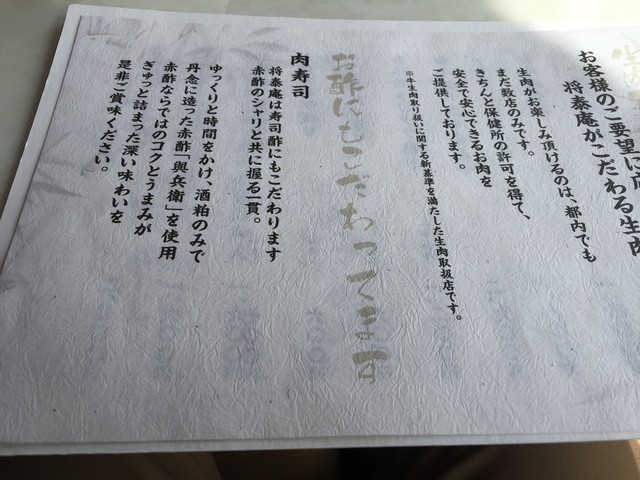 お客様のご要望に
将泰庵がこだわる生肉
生肉がお楽しみ頂けるのは、都内でも
まだ数店のみです。
きちんと保健所の許可を得て、
安全で安心できるお肉を
ご提供しております。
※牛生肉取り扱いに関する新基準を満たした生肉取扱店です。
お酢にもこだわってます
肉寿司
将泰庵は寿司酢にもこだわります
赤酢のシャリと共に握る一貫。
ゆっくりと時間をかけ、酒粕のみで
丹念に造った赤酢「與兵衛」を使用
赤酢ならではのコクとうまみが
ぎゅっと詰まった深い味わいを
是非ご賞味ください。